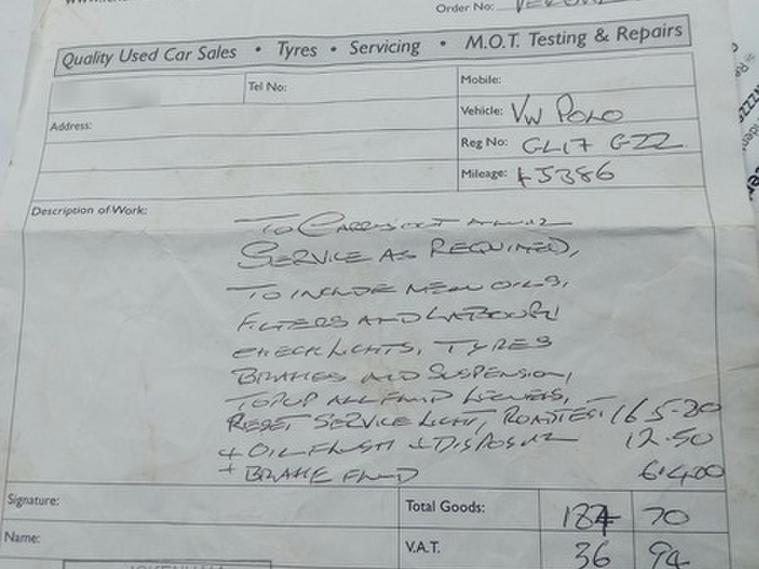 Order No:
Quality Used Car Sales • Tyres • Servicing • M.O.T. Testing & Repairs
Tel No:
Mobile:
Address:
Vehicle: VW POLO
Reg No: GL17 GZZ
Mileage: 45386
Description of Work:
TO CARRY OUT ANNUAL
SERVICE AS REQUIRED,
TO INCLUDE NEW OILS,
FILTERS AND LABOUR,
CHECK LIGHTS, TYRES
BRAKES AND SUSPENSION,
TOP UP ALL FLUID LEVELS,
RESET SERVICE LIGHT, ROADTEST 165-80
+ OIL FLUSH + DISPOSAL 12.50
+ BRAKE FLUID 6.400
Signature:
Total Goods: 184 70
Name:
V.A.T. 36 94